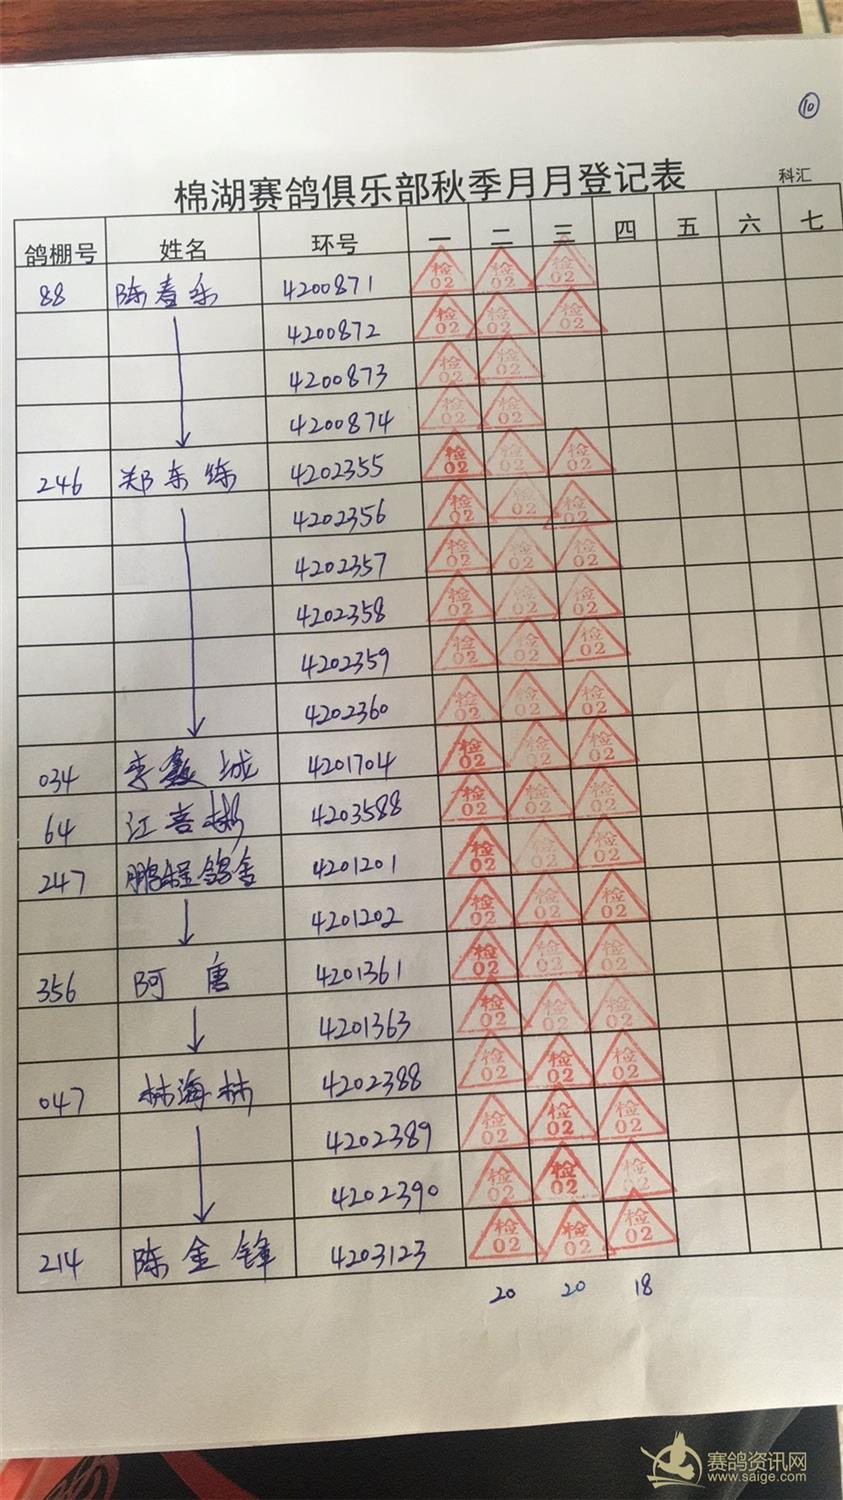 ⑩
棉湖赛鸽俱乐部秋季月月登记表 科汇
鸽棚号 姓名 环号 一 二 三 四 五 六 七
88 陈春乐 4200871 检02 检02 检02
4200872 检02 检02 检02
4200873 检02 检02
4200874 检02 检02
246 郑东练 4202355 检02 检02 检02
4202356 检02 检02 检02
4202357 检02 检02 检02
4202358 检02 检02 检02
4202359 检02 检02 检02
4202360 检02 检02 检02
034 李 城 4201704 检02 检02 检02
64 江喜彬 4203588 检02 检02 检02
247 鹏程鸽舍 4201201 检02 检02 检02
4201202 检02 检02 检02
356 阿唐 4201361 检02 检02 检02
4201363 检02 检02 检02
047 林海林 4202388 检02 检02 检02
4202389 检02 检02 检02
4202390 检02 检02 检02
214 陈金锋 4203123 检02 检02 检02
20 20 18
赛鸽资讯网
www.saige.com